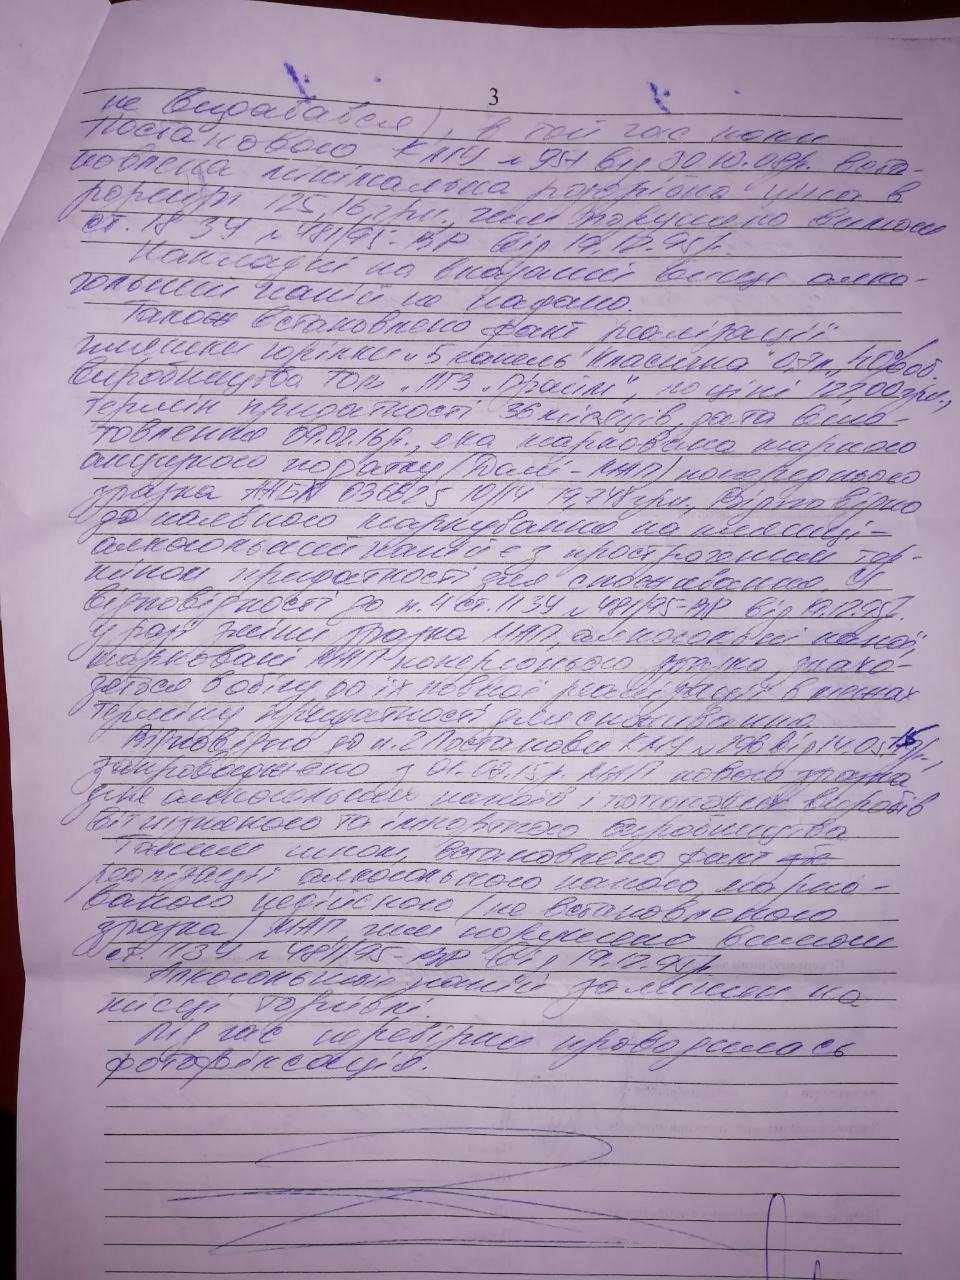 3
не видавався), в той час коли
Постановою КМУ № 957 від 30.10.08р. вста-
новлена мінімальна роздрібна ціна в
розмірі 125,16 грн., чим порушено вимоги
ст. 18 ЗУ № 481/95-ВР від 19.12.95р.
Накладні на вказаний вище алко-
гольний напій не надано.
Також встановлено факт реалізації
пляшки горілки "5 капель "Класична" 0,7л, 40%об.
виробництва ТОВ "ЛГЗ "Прайм", по ціні 122,00грн.,
термін придатності 36 місяців, дата виго-
товлення 09.02.16р., яка маркована маркою
акцизного податку (Далі-МАП) попереднього
зразка 10/14 19,748грн. Відповідно
до наявного маркування на пляшці -
алкогольний напій є з простроченим тер-
міном придатності для споживання. У
відповідності до п.4 ст. 11 ЗУ № 481/95-ВР від 19.12.95р.
у разі зміни зразка МАП, алкогольні напої,
марковані МАП попереднього зразка, знахо-
дяться в обігу до їх повної реалізації в межах
терміну придатності для споживання.
Відповідно до п.2 Постанови КМУ № 296 від 14.05.15р.,
запроваджено з МАП нового зразка
для алкогольних напоїв і тютюнових виробів
вітчизняного та імпортного виробництва.
Таким чином, встановлено факт
реалізації алкогольного напою, марко-
ваного недійсного (не встановленого
зразка) МАП, чим порушено вимоги
ст. 11 ЗУ № 481/95-ВР від 19.12.95р.
Алкогольний напій залишен на
місці торгівлі.
Під час перевірки проводилась
фотофіксація.